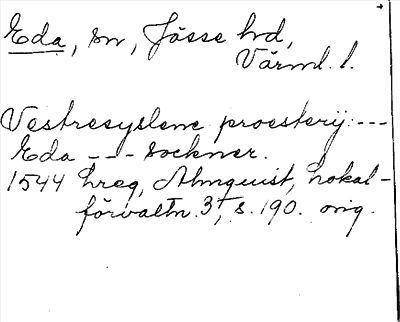 Eda, sn, Jösse hd,
Värml. l.
Vestresyslene proesterij: ---
Eda --- Sockner.
1544 hreg, Almquist, Lokal-
förvaltn. 3, s. 190. orig.